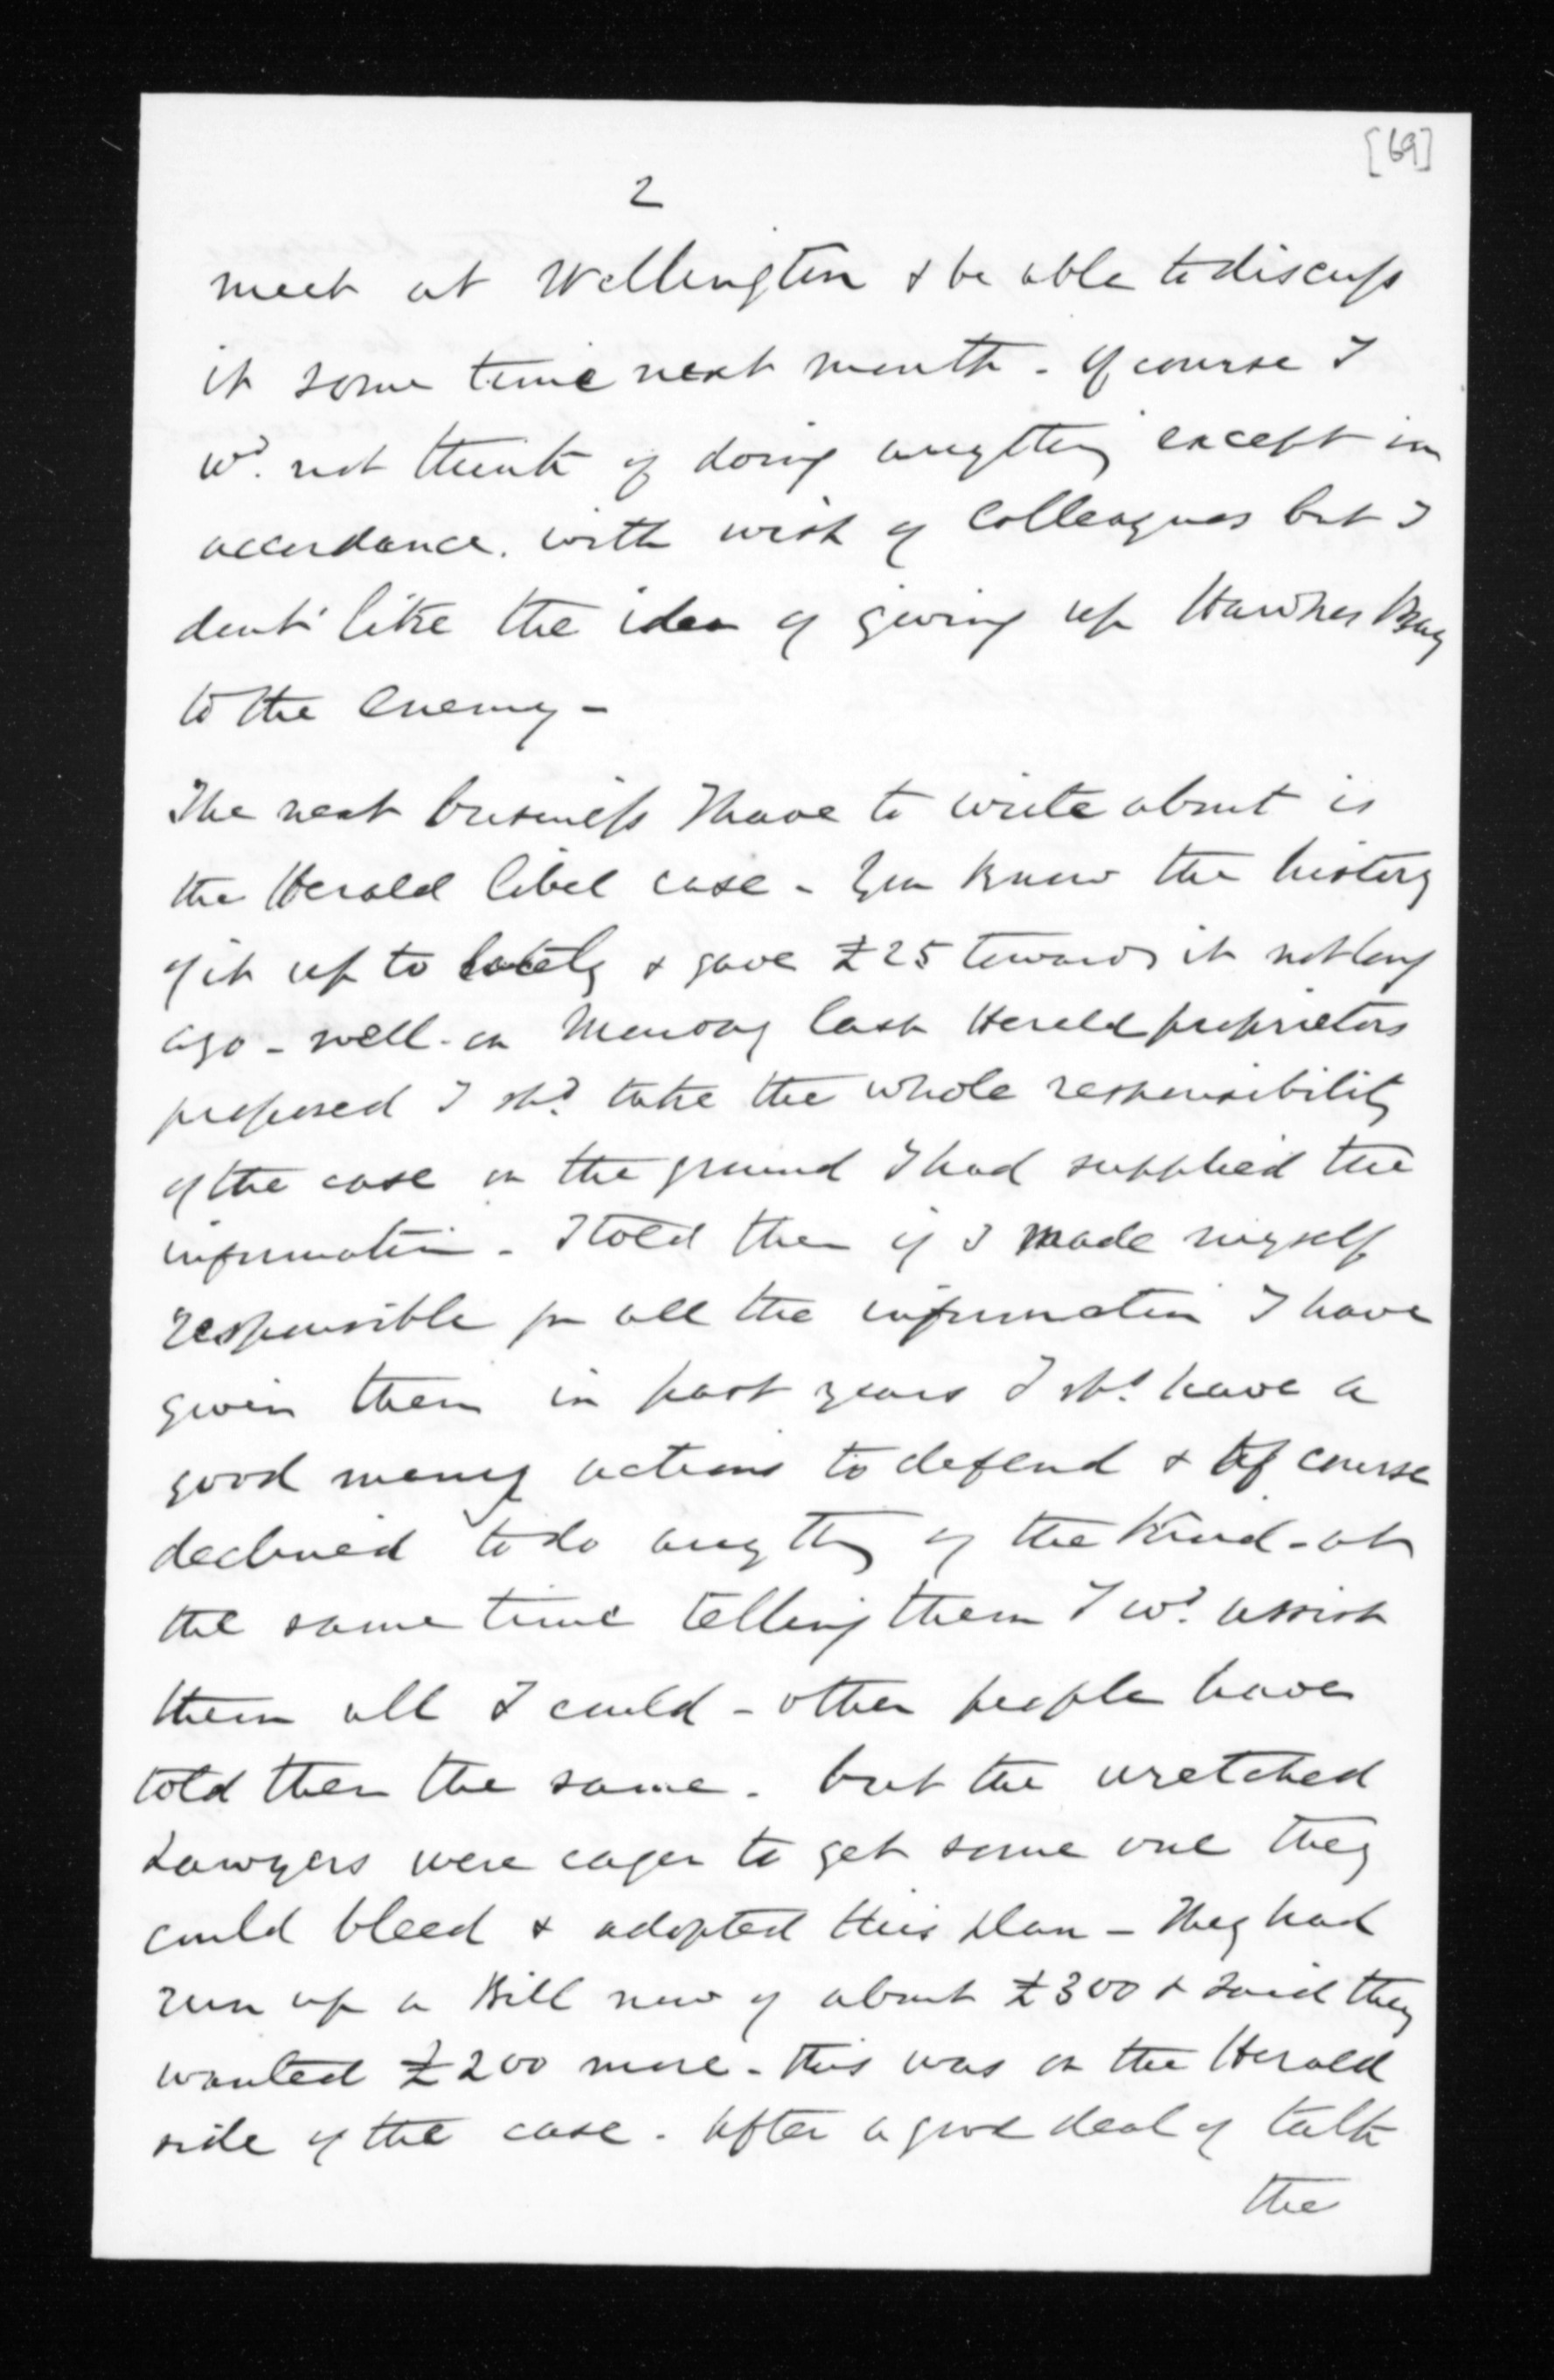 [69]
2
meet at Wellington & be able to discuss
it some time next month - Of course I
wd. not think of doing anything except in
accordance with wish of Colleagues but I
dont like the idea of giving up Hawkes Bay
to the enemy -
The next business I have to write about is
the Herald libel case - You know the history
of it up to lately & gave £25 towards it not long
ago - well - on Monday last Herald proprietors
proposed I shd take the whole responsibility
of the case on the ground I had supplied the
information - I told them if I made myself
responsible for all the information I have
given them in past years I shd. have a
good many actions to defend & of course
declined to do anything of the kind - at
the same time telling them I wd. assist
them all I could - other people have
told them the same - but the wretched
Lawyers were eager to get some one they
could bleed & adopted this plan - They had
run up a Bill now of about £300 & said they
wanted £200 more - this was on the Herald
side of the case - After a good deal of talk
the